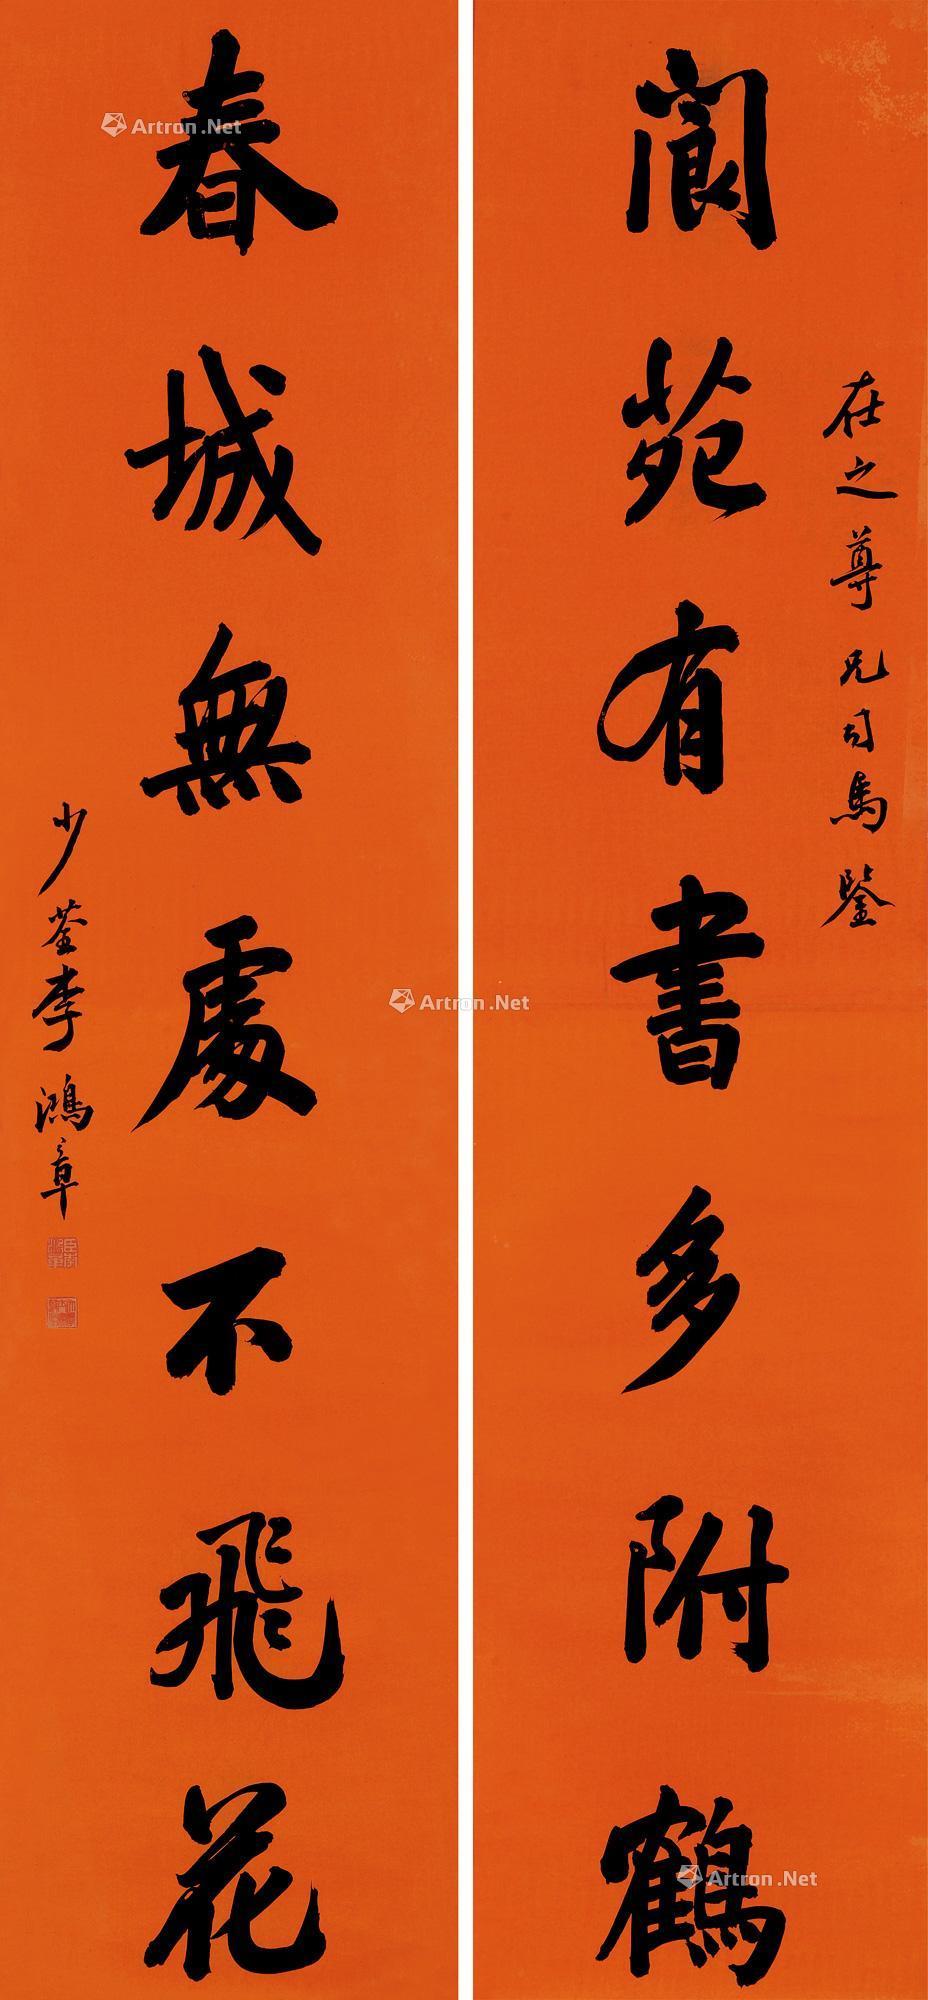 在之尊兄司馬鑒
閬苑有書多附鶴
春城無處不飛花
少荃李鴻章
Artron.Net
Artron.Net
Artron.Net